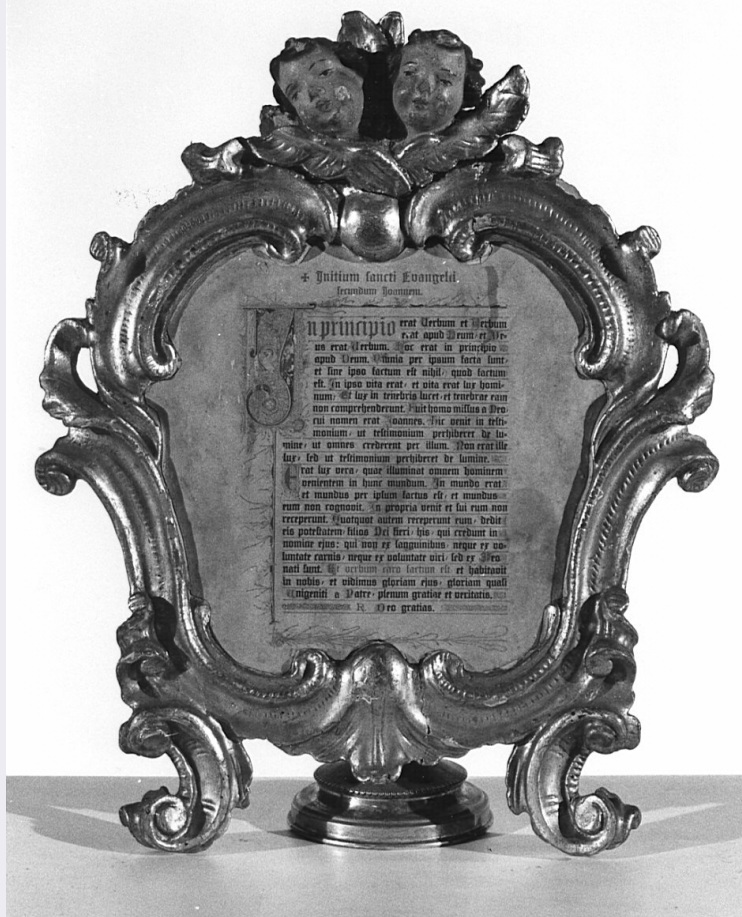 ✠ Initium sancti Evangelii
secundum Joannem.
In principio erat Verbum et Verbum
erat apud Deum, et De-
us erat Verbum. Hoc erat in principio
apud Deum. Omnia per ipsum facta sunt,
et sine ipso factum est nihil, quod factum
est. In ipso vita erat, et vita erat lux homi-
num; Et lux in tenebris lucet, et tenebrae eam
non comprehenderunt. Fuit homo missus a Deo
cui nomen erat Joannes. Hic venit in testi-
monium, ut testimonium perhiberet de lu-
mine, ut omnes crederent per illum. Non erat ille
lux, sed ut testimonium perhiberet de lumine.
Erat lux vera, quae illuminat omnem hominem
venientem in hunc mundum. In mundo erat
et mundus per ipsum factus est, et mundus
eum non cognovit. In propria venit et sui eum non
receperunt. Quotquot autem receperunt eum, dedit
eis potestatem filios Dei fieri, his, qui credunt in
nomine ejus: qui non ex sanguinibus, neque ex vo-
luntate carnis, neque ex voluntate viri, sed ex Deo
nati sunt. Et verbum caro factum est et habitavit
in nobis, et vidimus gloriam ejus, gloriam quasi
Unigeniti a Patre, plenum gratiae et veritatis.
R. Deo gratias.